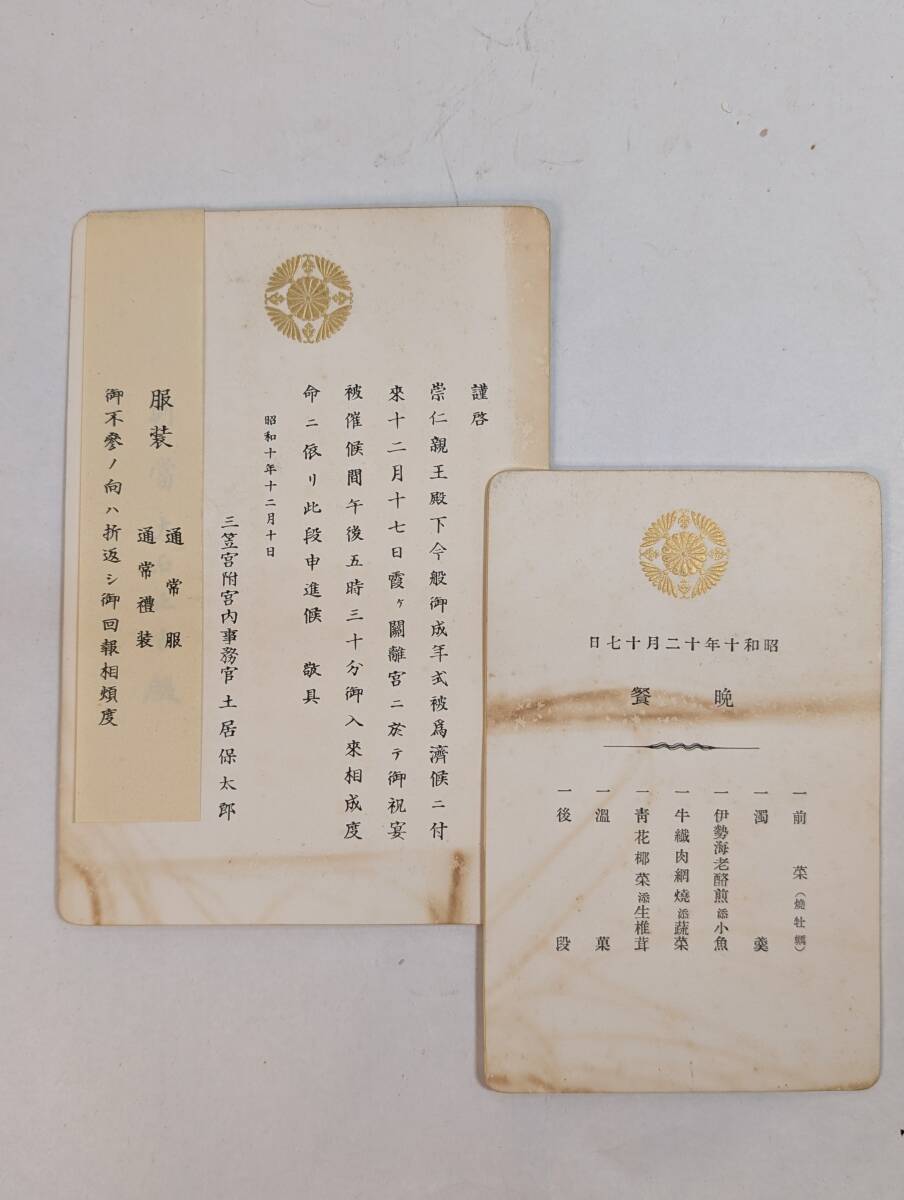 謹啓
崇仁親王殿下今般御成年式被爲濟候ニ付
來十二月十七日霞ヶ關離宮ニ於テ御祝宴
被催候間午後五時三十分御入來相成度
命ニ依リ此段申進候　敬具
昭和十年十二月十日
三笠宮附宮内事務官土居保太郎
服装　通常服
通常禮装
御不參ノ向ハ折返シ御回報相煩度
日七十月二十年十和昭
餐晩
一前菜（燒牡蠣）
一濁羹
一伊勢海老酪煎添小魚
一牛繊肉網燒添蔬菜
一靑花椰菜添生椎茸
一溫菓
一後段